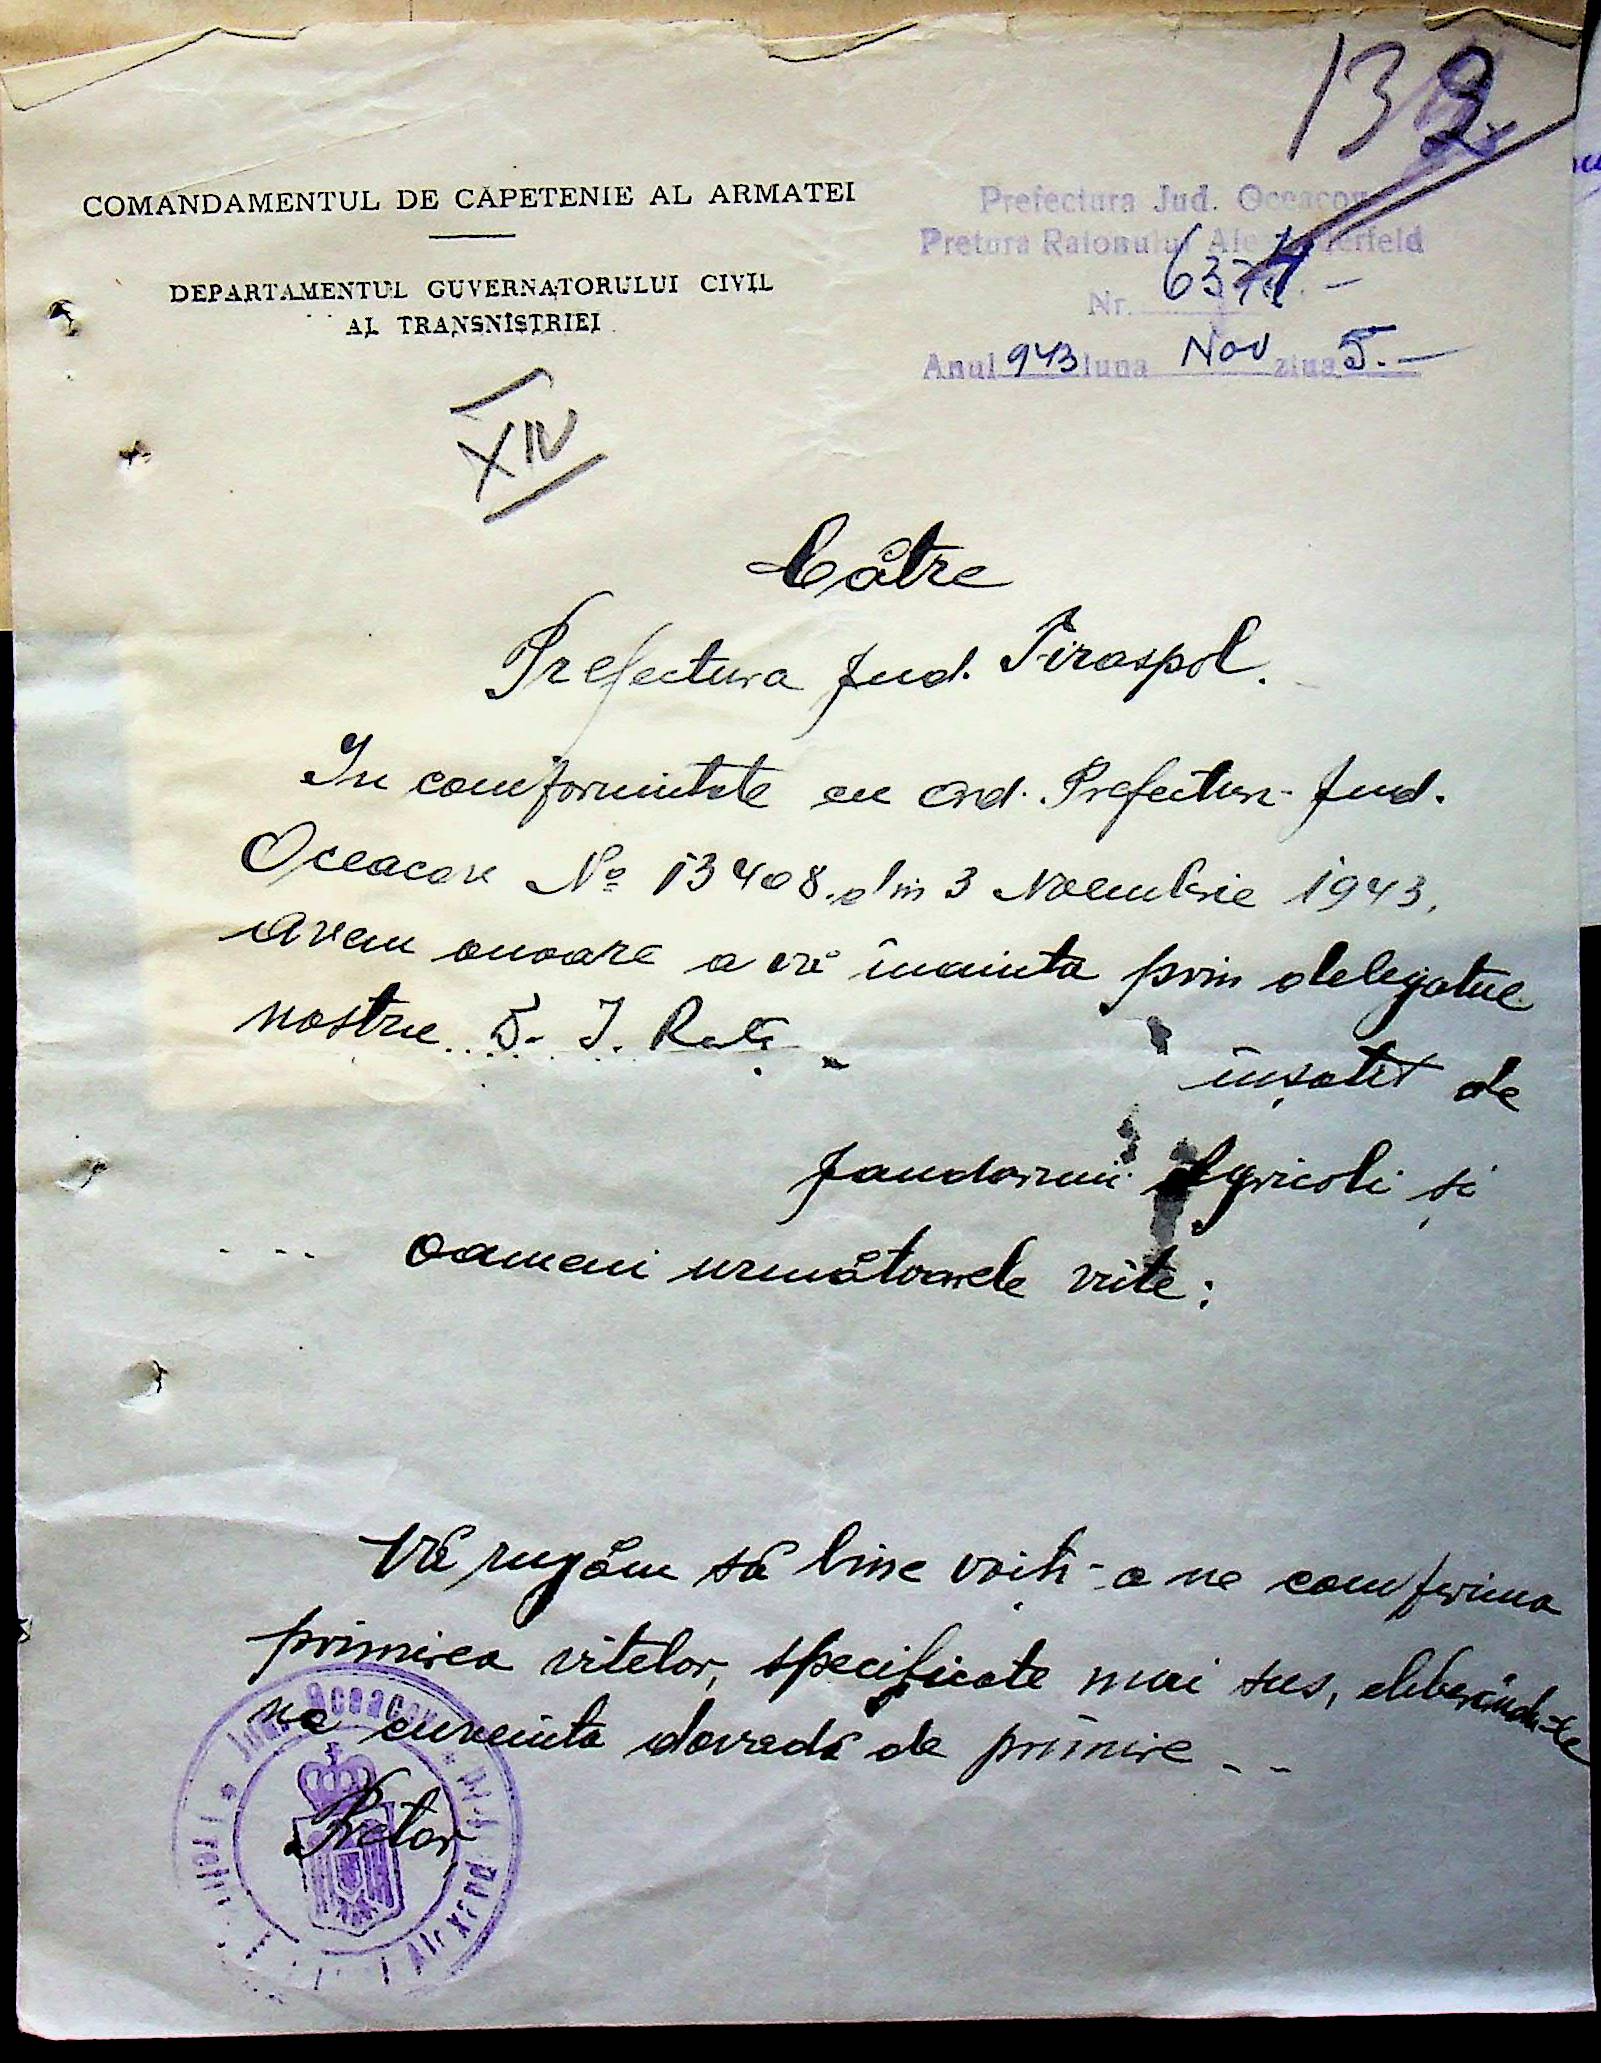 132
COMANDAMENTUL DE CĂPETENIE AL ARMATEI
DEPARTAMENTUL GUVERNATORULUI CIVIL
AL TRANSNISTRIEI
Prefectura Jud. Oceacov
Pretura Raionului
Nr. 6374.-
Anul 943 luna Nov ziua 5.-
XIV
Către
Prefectura Jud. Tiraspol.
In comformitate cu Ord. Prefectur. Jud.
Oceacov No 13408 din 3 Noembrie 1943,
Avem onoare a vă înainta prin delegatul
nostru D. I.
însoțit de
Jandarmi Agricoli și
oameni următoarele vite:
Vă rugăm să bine voiți-a ne comfirma
primirea vitelor, specificate mai sus, eliberându-se
ne cuvenita dovadă de primire --
Pretor,
Jud. Oceacov